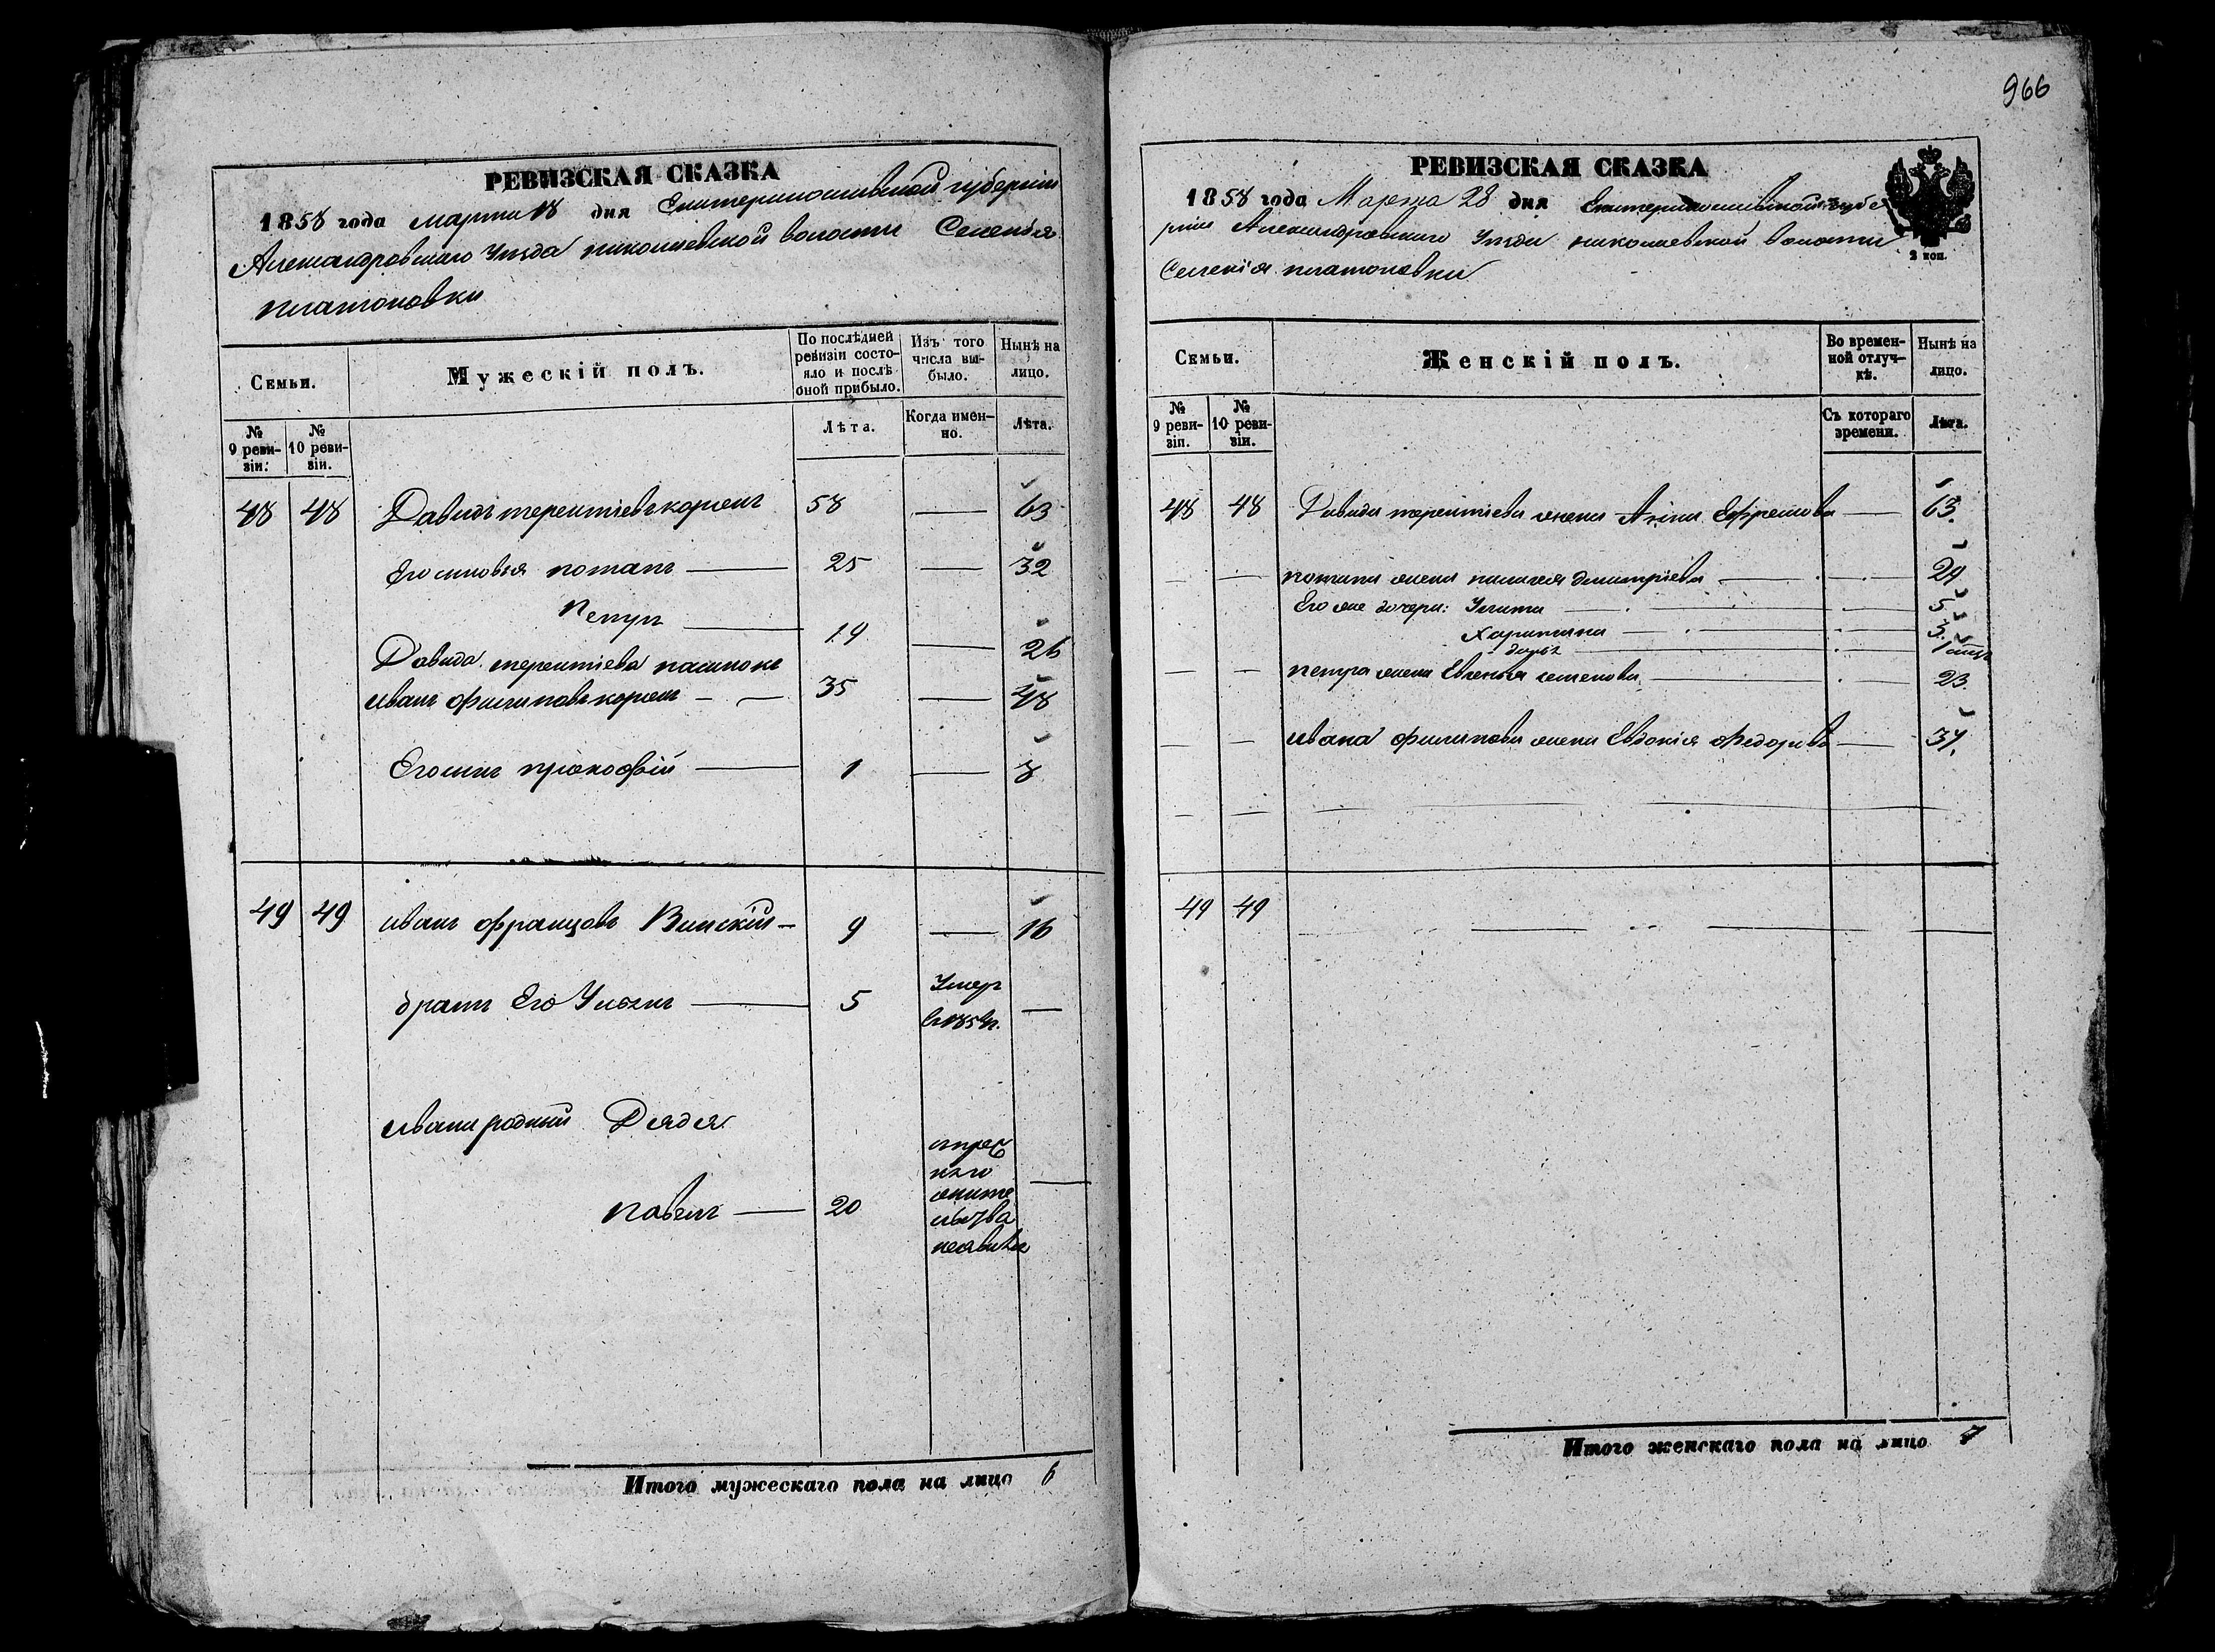 966
РЕВИЗСКАЯ СКАЗКА
1858 года марта 18 дня Екатеринославской губернии
Александровскаго Уѣзда николаевской волости Селенія
платоновки
Семьи.
Мужескій полъ.
По послѣдней ревизіи состо-
яло и послѣ
оной прибыло.
Изъ того
числа вы-
было.
Нынѣ на
лицо.
№
9 реви-
зіи.
№
10 реви-
зіи.
Лѣта.
Когда имен-
но.
Лѣта.
48 48 Давидъ терентіевъ 58 — 63
Его сыновья потапъ — 25 — 32
Петръ — 19 — 26
Давида терентіева пасынокъ
иванъ филиповъ — 35 — 48
Его сынъ прокофій — 1 — 8
49 49 иванъ францовъ — 9 — 16
братъ Его — 5 Умер
—
ивана родный Дядя
павелъ — 20
—
Итого мужескаго пола на лицо 6
РЕВИЗСКАЯ СКАЗКА
1858 года Марта 28 дня Екатеринославской губе
рніи Александровскаго Уѣзда николаевской волости
Селенія платоновки
2 коп.
Семьи.
Женскій полъ.
Во времен-
ной отлуч-
кѣ.
Нынѣ на
лицо.
№
9 реви-
зіи.
№
10 реви-
зіи.
Съ котораго
времени.
Лѣта.
48 48 Давида терентіева жена Анна Ефремова — 63.
— — потапа жена пилагея димитріева — — 29
Его же дочери: Улита — — 5
Харитина — — 3.
дарья — 1
— — петра жена Евгенья семенова — — 23.
— — ивана филипова жена Евдокія Федорова — 37.
49 49
Итого женскаго пола на лицо 7